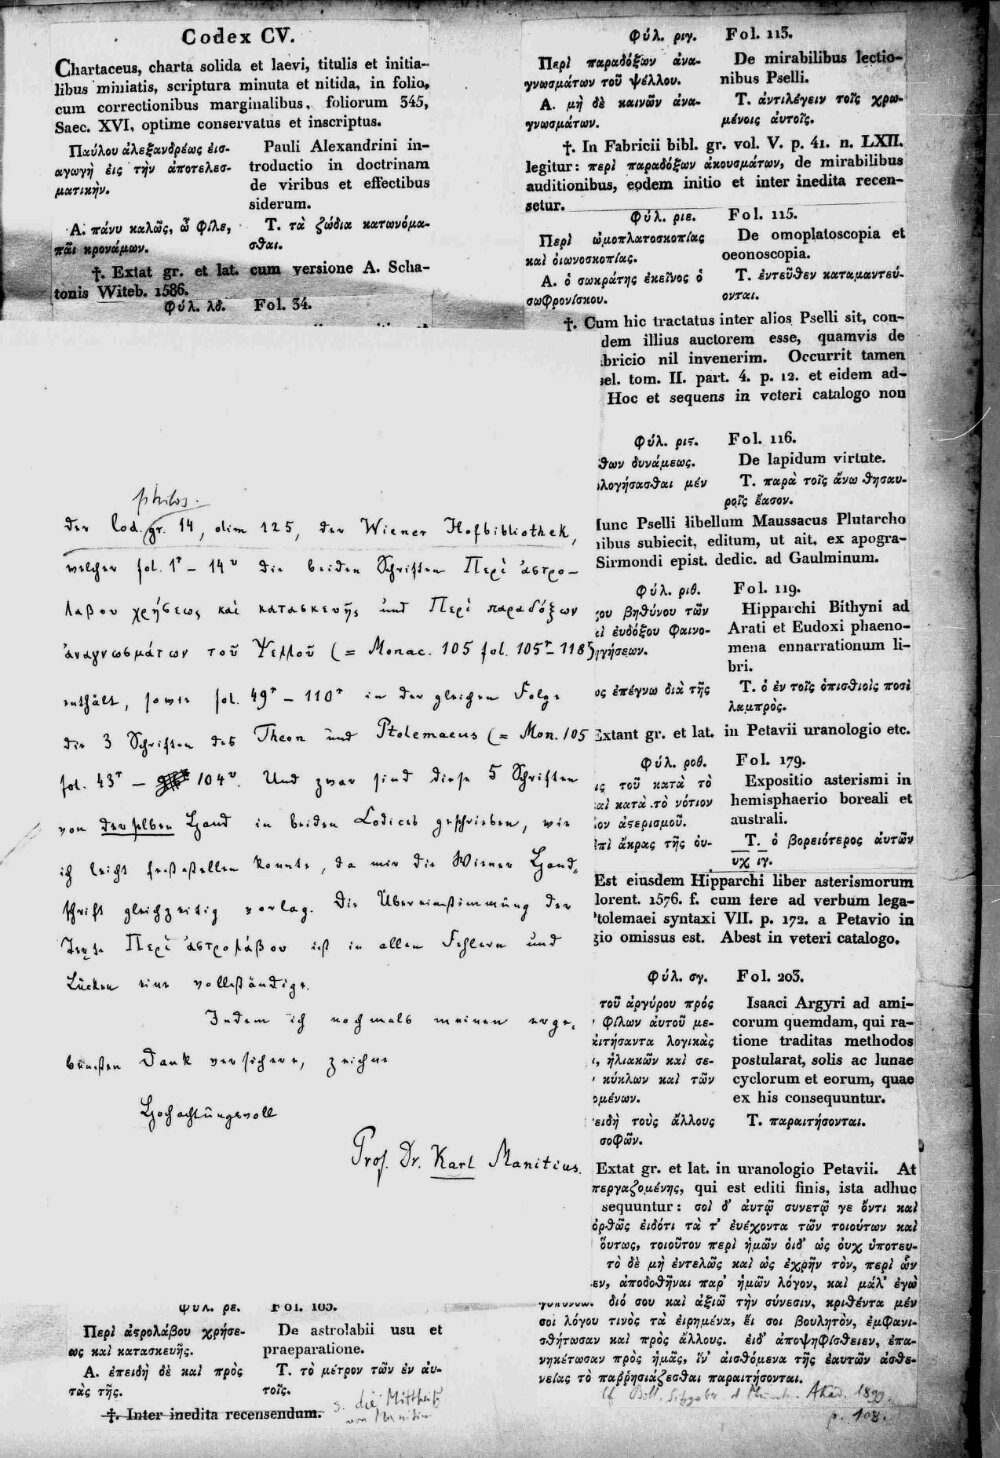 Codex CV.
Chartaceus, charta solida et laevi, titulis et initia-
libus miniatis, scriptura minuta et nitida, in folio,
cum correctionibus marginalibus, foliorum 345,
Saec. XVI, optime conservatus et inscriptus.
Παύλου ἀλεξανδρέως εἰσ-
αγωγὴ εἰς τὴν ἀποτελεσ-
ματικήν.
Pauli Alexandrini in-
troductio in doctrinam
de viribus et effectibus
siderum.
Α. πάνυ καλῶς, ὦ φίλε,
παῖ κρονάμων.
Τ. τὰ ζώδια κατωνόμα-
σθαι.
†. Extat gr. et lat. cum versione A. Scha-
tonis Witeb. 1586.
Φύλ. λδ. Fol. 34.
philos.
der Cod. gr. 14, olim 125, der Wiener Hofbibliothek,
welcher fol. 1r – 14v die beiden Schriften Περὶ ἀστρο-
λάβου χρήσεως καὶ κατασκευῆς und Περὶ παραδόξων
ἀναγνωσμάτων τοῦ Ψελλοῦ (= Monac. 105 fol. 105r – 118)
enthält, sowie fol. 49r – 110r in der gleichen Folge
die 3 Schriften des Theon und Ptolemaeus (= Mon. 105
fol. 43r – 104v. Und zwar sind diese 5 Schriften
von derselben Hand in beiden Codices geschrieben, wie
ich leicht feststellen konnte, da mir die Wiener Hand-
schrift gleichzeitig vorlag. Die Übereinstimmung der
Texte Περὶ ἀστρολάβου ist in allen Fehlern und
Lücken eine vollständige.
Indem ich nochmals meinen erge-
bensten Dank versichere, zeichne
Hochachtungsvoll
Prof. Dr. Karl Manitius.
Φύλ. ρε. Fol. 105.
Περὶ ἀστρολάβου χρήσε-
ως καὶ κατασκευῆς.
De astrolabii usu et
praeparatione.
Α. ἐπειδὴ δὲ καὶ πρὸς
τὰς τῆς.
Τ. τὸ μέτρον τῶν ἐν αὐ-
τοῖς.
†. Inter inedita recensendum.
s. die Mittheil.
von Manitius
Φύλ. ριγ. Fol. 113.
Περὶ παραδόξων ἀνα-
γνωσμάτων τοῦ ψέλλου.
De mirabilibus lectio-
nibus Pselli.
Α. μὴ δὲ καινῶν ἀνα-
γνωσμάτων.
Τ. ἀντιλέγειν τοῖς χρω-
μένοις αὐτοῖς.
†. In Fabricii bibl. gr. vol. V. p. 41. n. LXII.
legitur: περὶ παραδόξων ἀκουσμάτων, de mirabilibus
auditionibus, eodem initio et inter inedita recen-
setur.
Φύλ. ριε. Fol. 115.
Περὶ ὠμοπλατοσκοπίας
καὶ οἰωνοσκοπίας.
De omoplatoscopia et
oeonoscopia.
Α. ὁ σωκράτης ἐκεῖνος ὁ
σωφρονίσκου.
Τ. ἐντεῦθεν καταμαντεύ-
ονται.
†. Cum hic tractatus inter alios Pselli sit, con-
dem illius auctorem esse, quamvis de
bricio nil invenerim. Occurrit tamen
sel. tom. II. part. 4. p. 12. et eidem ad-
Hoc et sequens in veteri catalogo non
Φύλ. ριϛ. Fol. 116.
θων δυνάμεως.
De lapidum virtute.
λογήσασθαι μέν
Τ. παρὰ τοῖς ἄνω θησαυ-
ροῖς ἔασον.
Hunc Pselli libellum Maussacus Plutarcho
nibus subiecit, editum, ut ait, ex apogra-
Sirmondi epist. dedic. ad Gaulminum.
Φύλ. ριθ. Fol. 119.
χου βηθύνου τῶν
αὶ εὐδόξου φαινο-
ηγήσεων.
Hipparchi Bithyni ad
Arati et Eudoxi phaeno-
mena ennarrationum li-
bri.
ος ἐπέγνω διὰ τῆς
Τ. ὁ ἐν τοῖς ὀπισθίοις ποσὶ
λαμπρὸς.
Extant gr. et lat. in Petavii uranologio etc.
Φύλ. ροθ. Fol. 179.
ις τοῦ κατὰ τὸ
αὶ κατὰ τὸ νότιον
ον ἀστερισμοῦ.
Expositio asterismi in
hemisphaerio boreali et
australi.
ἐπὶ ἄκρας τῆς οὐ-
Τ. ὁ βορειότερος αὐτῶν
υχ ιγ.
Est eiusdem Hipparchi liber asterismorum
lorent. 1576. f. cum fere ad verbum lega-
Ptolemaei syntaxi VII. p. 172. a Petavio in
gio omissus est. Abest in veteri catalogo.
Φύλ. σγ. Fol. 203.
τοῦ ἀργύρου πρός
φίλων αὐτοῦ με-
αιτήσαντα λογικὰς
, ἡλιακῶν καὶ σε-
κύκλων καὶ τῶν
ομένων.
Isaaci Argyri ad ami-
corum quemdam, qui ra-
tione traditas methodos
postularat, solis ac lunae
cyclorum et eorum, quae
ex his consequuntur.
ειδὴ τοὺς ἄλλους
σοφῶν.
Τ. παραιτήσονται.
Extat gr. et lat. in uranologio Petavii. At
περγαζομένης, qui est editi finis, ista adhuc
sequuntur: σοὶ δ' αὐτῷ συνετῷ γε ὄντι καὶ
ὀρθῶς εἰδότι τὰ τ' ἐνέχοντα τῶν τοιούτων καὶ
ὄυτως, τοιοῦτον περὶ ἡμῶν οἶδ' ὡς οὐχ ὑποτευ-
τὸ δὲ μὴ ἐντελῶς καὶ ὡς ἐχρῆν τὸν, περὶ ὧν
εν, ἀποδοθῆναι παρ' ἡμῶν λόγον, καὶ μάλ' ἐγὼ
διό σου καὶ ἀξιῶ τὴν σύνεσιν, κριθέντα μέν
σοι λόγου τινὸς τὰ εἰρημένα, ἔι σοι βουλητὸν, ἐμφανι-
σθήτωσαν καὶ πρὸς ἄλλους. εἰδ' ἀποψηφίσθειεν, ἐπα-
νηκέτωσαν πρὸς ἡμᾶς, ἵν' αἰσθόμενα τῆς ἑαυτῶν ἀσθε-
νείας τὸ παῤῥησιάζεσθαι παραιτήσονται.
cf. Boll, Sitzgsber. d. Münch. Akad. 1899
p. 108.